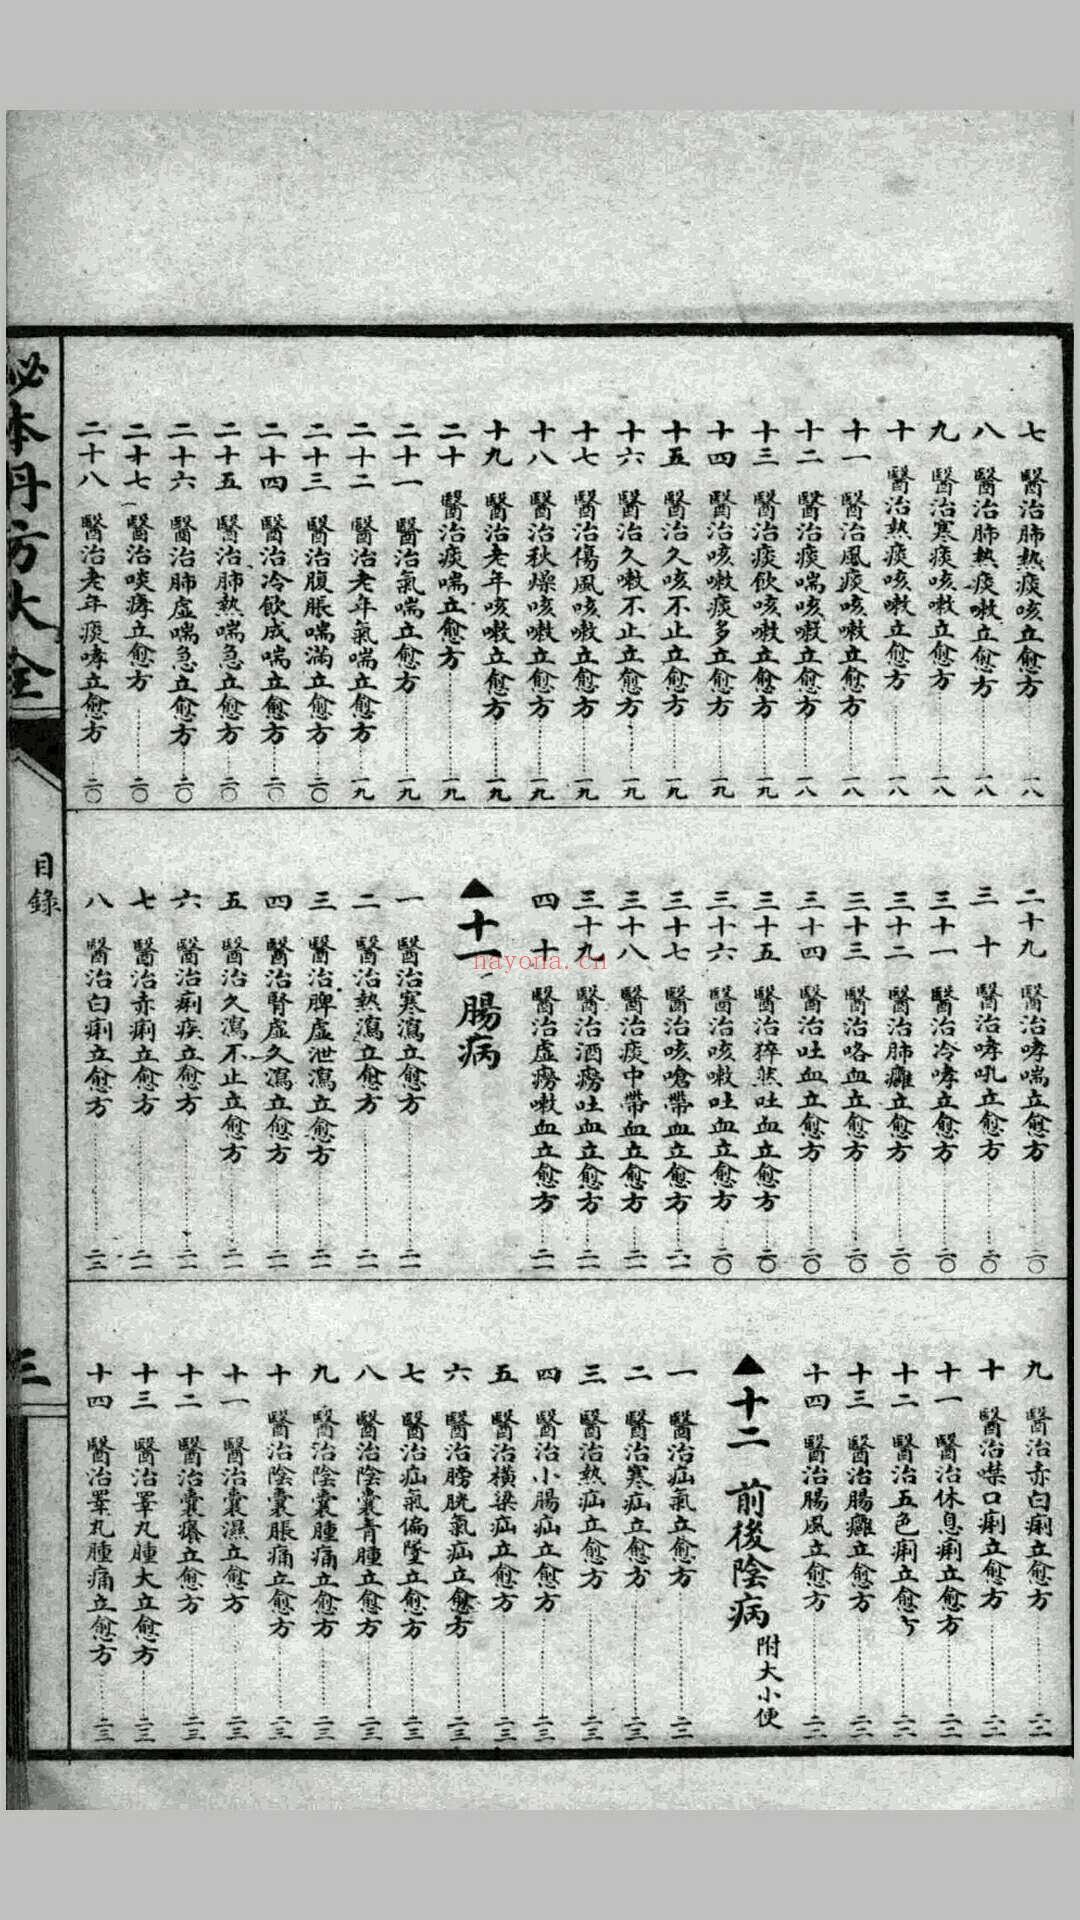 七 醫治肺熱痰咳立愈方 一八
八 醫治肺熱痰嗽立愈方 一八
九 醫治寒痰咳嗽立愈方 一八
十 醫治熱痰咳嗽立愈方 一八
十一 醫治風痰咳嗽立愈方 一八
十二 醫治痰喘咳嗽立愈方 一八
十三 醫治痰飲咳嗽立愈方 一九
十四 醫治咳嗽痰多立愈方 一九
十五 醫治久咳不止立愈方 一九
十六 醫治久嗽不止立愈方 一九
十七 醫治傷風咳嗽立愈方 一九
十八 醫治秋燥咳嗽立愈方 一九
十九 醫治老年咳嗽立愈方 一九
二十 醫治痰喘立愈方 一九
二十一 醫治氣喘立愈方 一九
二十二 醫治老年氣喘立愈方 一九
二十三 醫治腹脹喘滿立愈方 二〇
二十四 醫治冷飲成喘立愈方 二〇
二十五 醫治肺熱喘急立愈方 二〇
二十六 醫治肺虛喘急立愈方 二〇
二十七 醫治痰哮立愈方 二〇
二十八 醫治老年痰哮立愈方 二〇
二十九 醫治哮喘立愈方 二〇
三十 醫治哮吼立愈方 二〇
三十一 醫治冷哮立愈方 二〇
三十二 醫治肺癰立愈方 二〇
三十三 醫治咯血立愈方 二〇
三十四 醫治吐血立愈方 二〇
三十五 醫治猝然吐血立愈方 二〇
三十六 醫治咳嗽吐血立愈方 二〇
三十七 醫治咳嗆帶血立愈方 二一
三十八 醫治痰中帶血立愈方 二一
三十九 醫治酒癆吐血立愈方 二一
四十 醫治虛癆嗽血立愈方 二一
▲十一 腸病
一 醫治寒瀉立愈方 二一
二 醫治熱瀉立愈方 二一
三 醫治脾虛泄瀉立愈方 二一
四 醫治腎虛久瀉立愈方 二一
五 醫治久瀉不止立愈方 二一
六 醫治痢疾立愈方 二一
七 醫治赤痢立愈方 二一
八 醫治白痢立愈方 二二
九 醫治赤白痢立愈方 二二
十 醫治噤口痢立愈方 二二
十一 醫治休息痢立愈方 二二
十二 醫治五色痢立愈方 二二
十三 醫治腸癰立愈方 二二
十四 醫治腸風立愈方 二二
▲十二 前後陰病 附大小便
一 醫治疝氣立愈方 二二
二 醫治寒疝立愈方 二三
三 醫治熱疝立愈方 二三
四 醫治小腸疝立愈方 二三
五 醫治橫梁疝立愈方 二三
六 醫治膀胱氣疝立愈方 二三
七 醫治疝氣偏墜立愈方 二三
八 醫治陰囊青腫立愈方 二三
九 醫治陰囊腫痛立愈方 二三
十 醫治陰囊脹痛立愈方 二三
十一 醫治囊濕立愈方 二三
十二 醫治囊癢立愈方 二三
十三 醫治睪丸腫大立愈方 二三
十四 醫治睪丸腫痛立愈方 二三
秘本丹方大全
目錄
三
hayona.cn